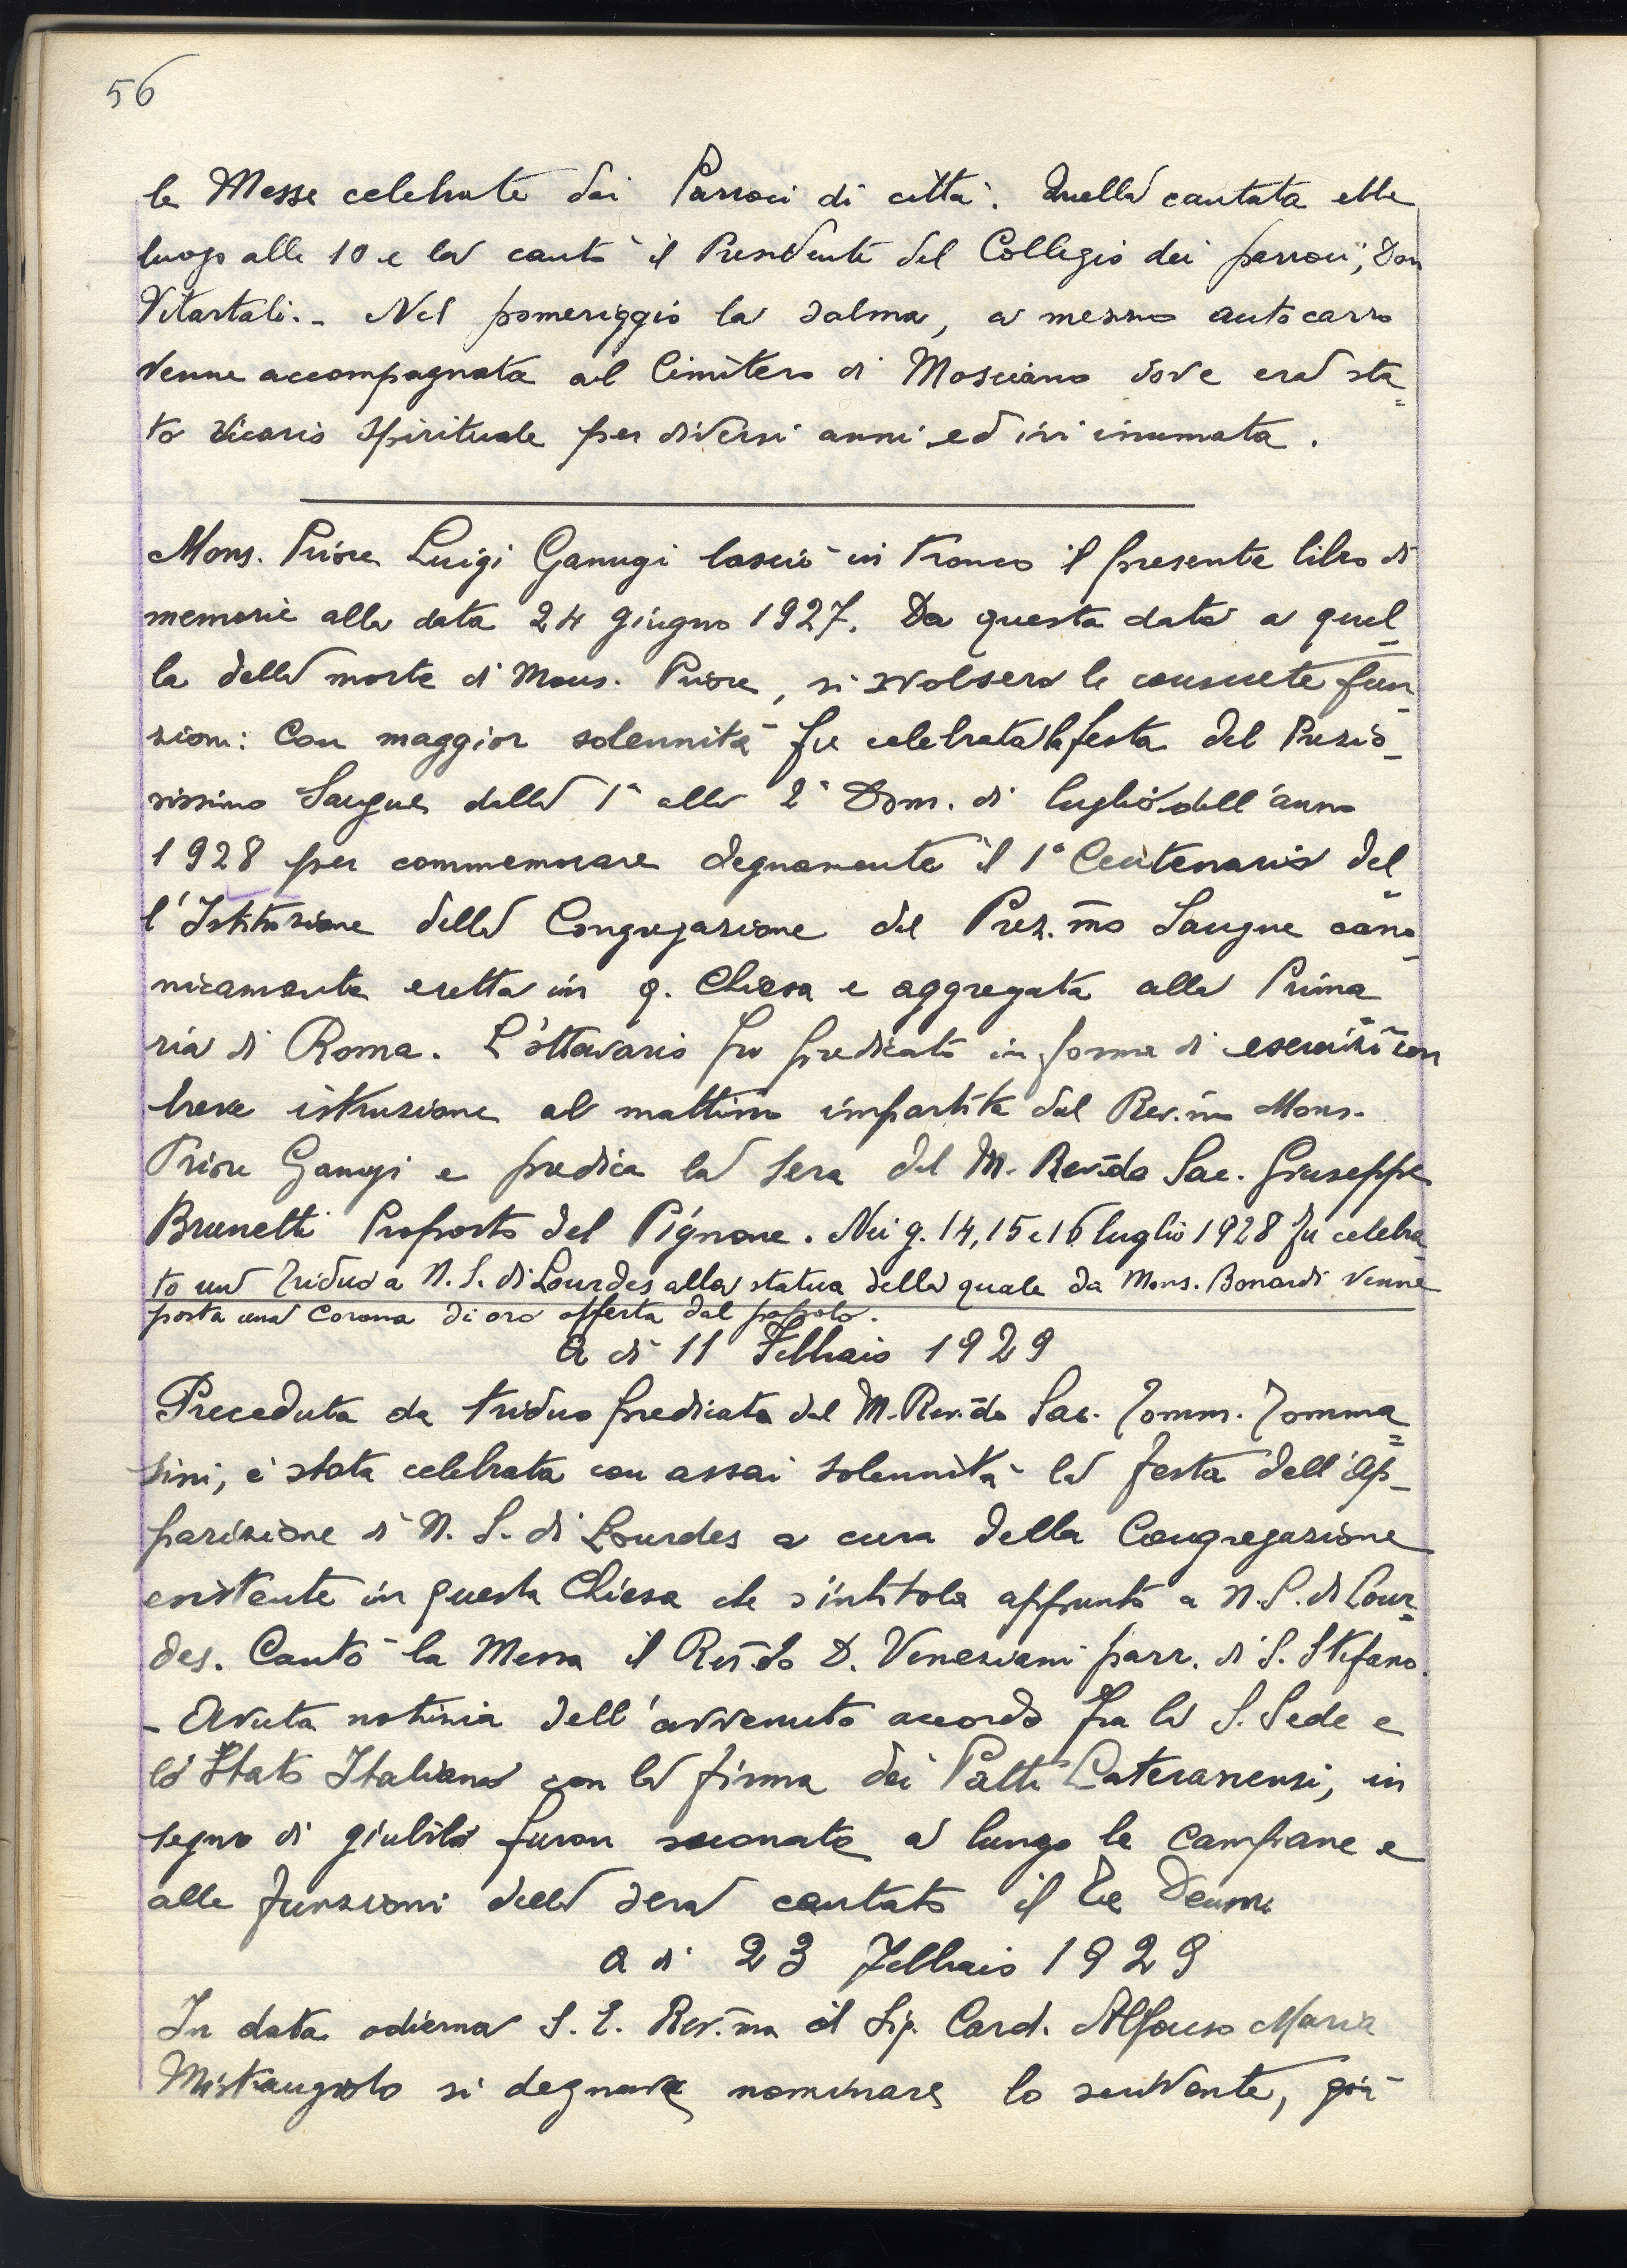 56
le Messe celebrate dai Parroci di città. Quella cantata ebbe
luogo alle 10 e la cantò il Presidente del Collegio dei parroci, Don
Vitartali. - Nel pomeriggio la salma, a mezzo autocarro
venne accompagnata al Cimitero di Mosciano dove era sta=
to Vicario Spirituale per diversi anni ed ivi inumata.
Mons. Priore Luigi Ganugi lasciò in tronco il presente libro di
memorie alla data 24 giugno 1927. Da questa data a quel-
la della morte di Mons. Priore, si svolsero le consuete fun-
zioni: Con maggior solennità fu celebrata la festa del Prezio-
sissimo Sangue dalla 1ª alla 2ª Dom. di luglio dell'anno
1928 per commemorare degnamente il 1° Centenario del=
l'Istituzione della Congregazione del Prez.mo Sangue cano-
nicamente eretta in q. Chiesa e aggregata alla Prima
ria di Roma. L'ottavario fu predicato in forma di esercizi con
breve istruzione al mattino impartita dal Rev.mo Mons.
Priore Ganugi e predica la sera del M. Rev.do Sac. Giuseppe
Brunetti Proposto del Pignone. Nei g. 14, 15 e 16 luglio 1928 fu celebra
to un Triduo a N. S. di Lourdes alla statua della quale da Mons. Bonardi venne
posta una Corona di oro offerta dal popolo.
A dì 11 Febbraio 1929
Preceduta da triduo predicato dal M. Rev.do Sac. Tomm. Tomma=
sini, è stata celebrata con assai solennità la festa dell'Ap-
parizione di N. S. di Lourdes a cura della Congregazione
esistente in questa Chiesa che s'intitola appunto a N. S. di Lour=
des. Cantò la Messa il Rev.do D. Veneziani parr. di S. Stefano.
- Avuta notizia dell'avvenuto accordo fra la S. Sede e
lo Stato Italiano con la firma dei Patti Lateranensi, in
segno di giubilo furon suonate a lungo le campane e
alle funzioni della sera cantato il Te Deum
A dì 23 Febbraio 1929
In data odierna S. E. Rev.ma il Sig. Card. Alfonso Maria
Mistrangelo si degnava nominare lo scrivente, già